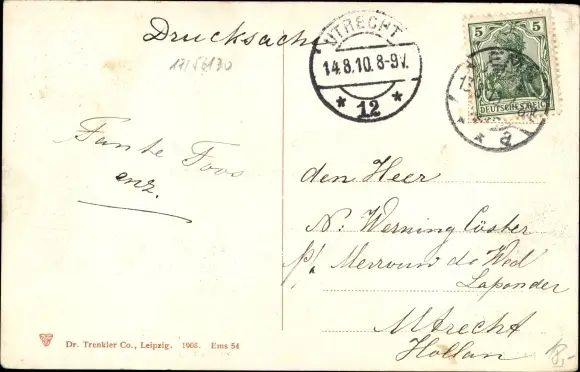 Drucksache
UTRECHT
14.8.10.8-9V.
12
5 5
DEUTSCHES REICH
EMS
a
Tante Toos
enz.
den Heer
N: Werning Cöster
p/. Mevrouw de Wed
Laponder
Utrecht
Hollan
Dr. Trenkler Co., Leipzig. 1908. Ems 54